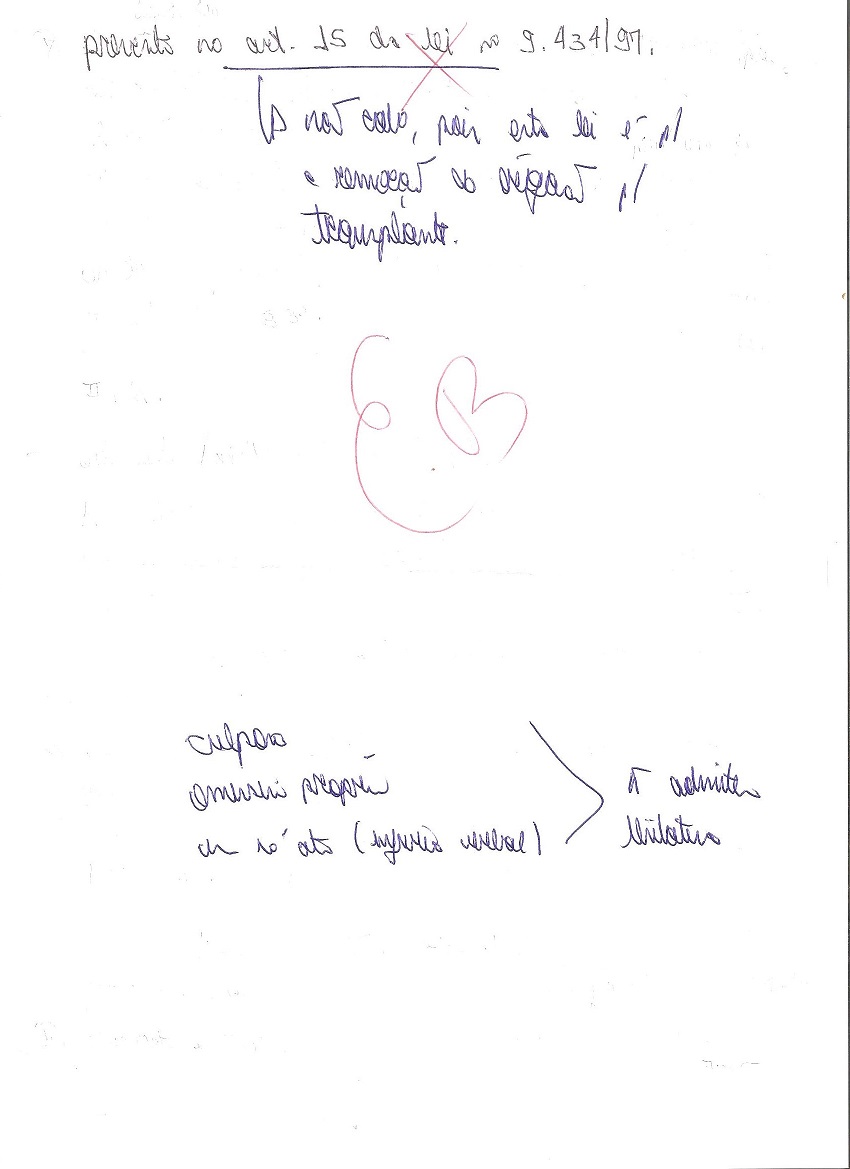 previsto no art. 15 da lei no 9.434/97.
não cabe, pois esta lei é p/
a remoção do órgão p/
transplante.
culposo
omissivo próprio
de só ato (injúria verbal)
ñ admitem
tentativa